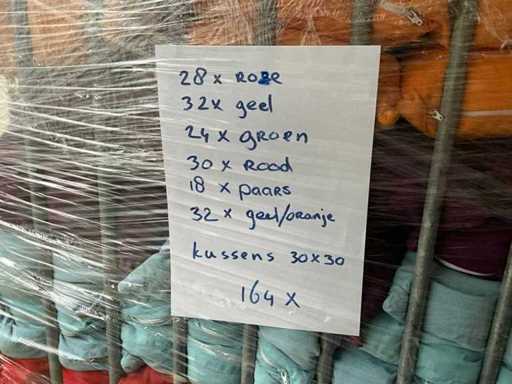 28 x ROZE
32x geel
24 x GROEN
30 x ROOD
18 x PAARS
32 x geel/oranje
kussens 30x30
164 x